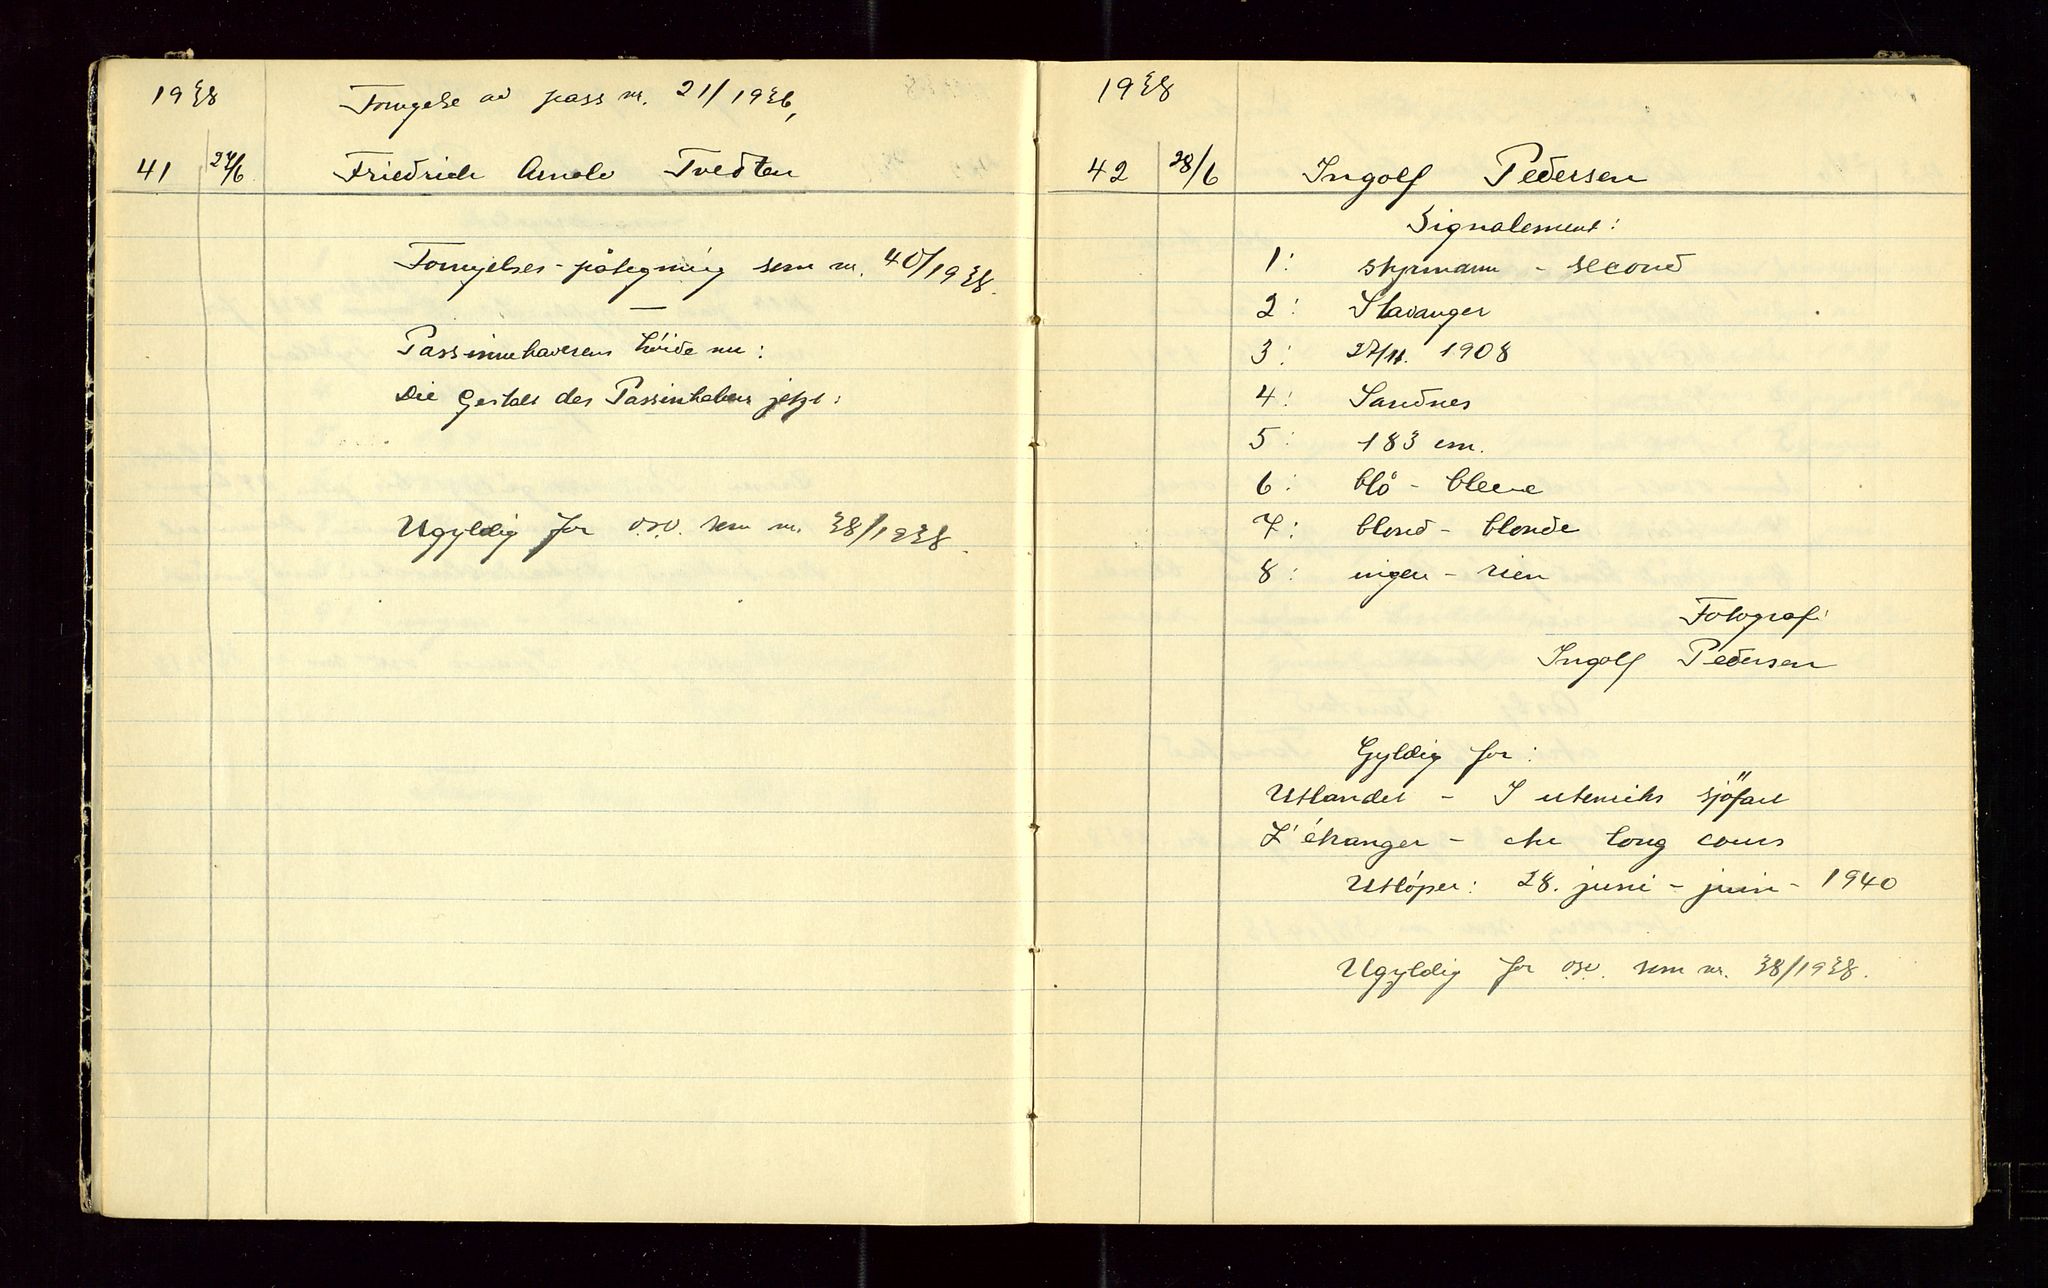 1938
Fornyelse av pass nr. 21/1936,
41 27/6 Friedrich Arnold Tvedten
Fornyelses-påtegning som nr. 40/1938.
—
Passinnehaverens höide nu:
Die Gestalt des Passinhabers jetzt:
Ugyldig for o.s.v. som nr. 38/1938.
1938
42 28/6 Ingolf Pedersen
Signalement:
1: styrmann - second
2: Stavanger
3: 27/11. 1908
4: Sandnes
5: 183 cm.
6: blå - bleue
7: blond - blonde
8: ingen - rien
Fotografi
Ingolf Pedersen
Gyldig for:
Utlandet - I utenriks sjöfart
L'étranger - au long cours
Utlóper: 28. juni - juin - 1940
Ugyldig for osv. som nr. 38/1938.